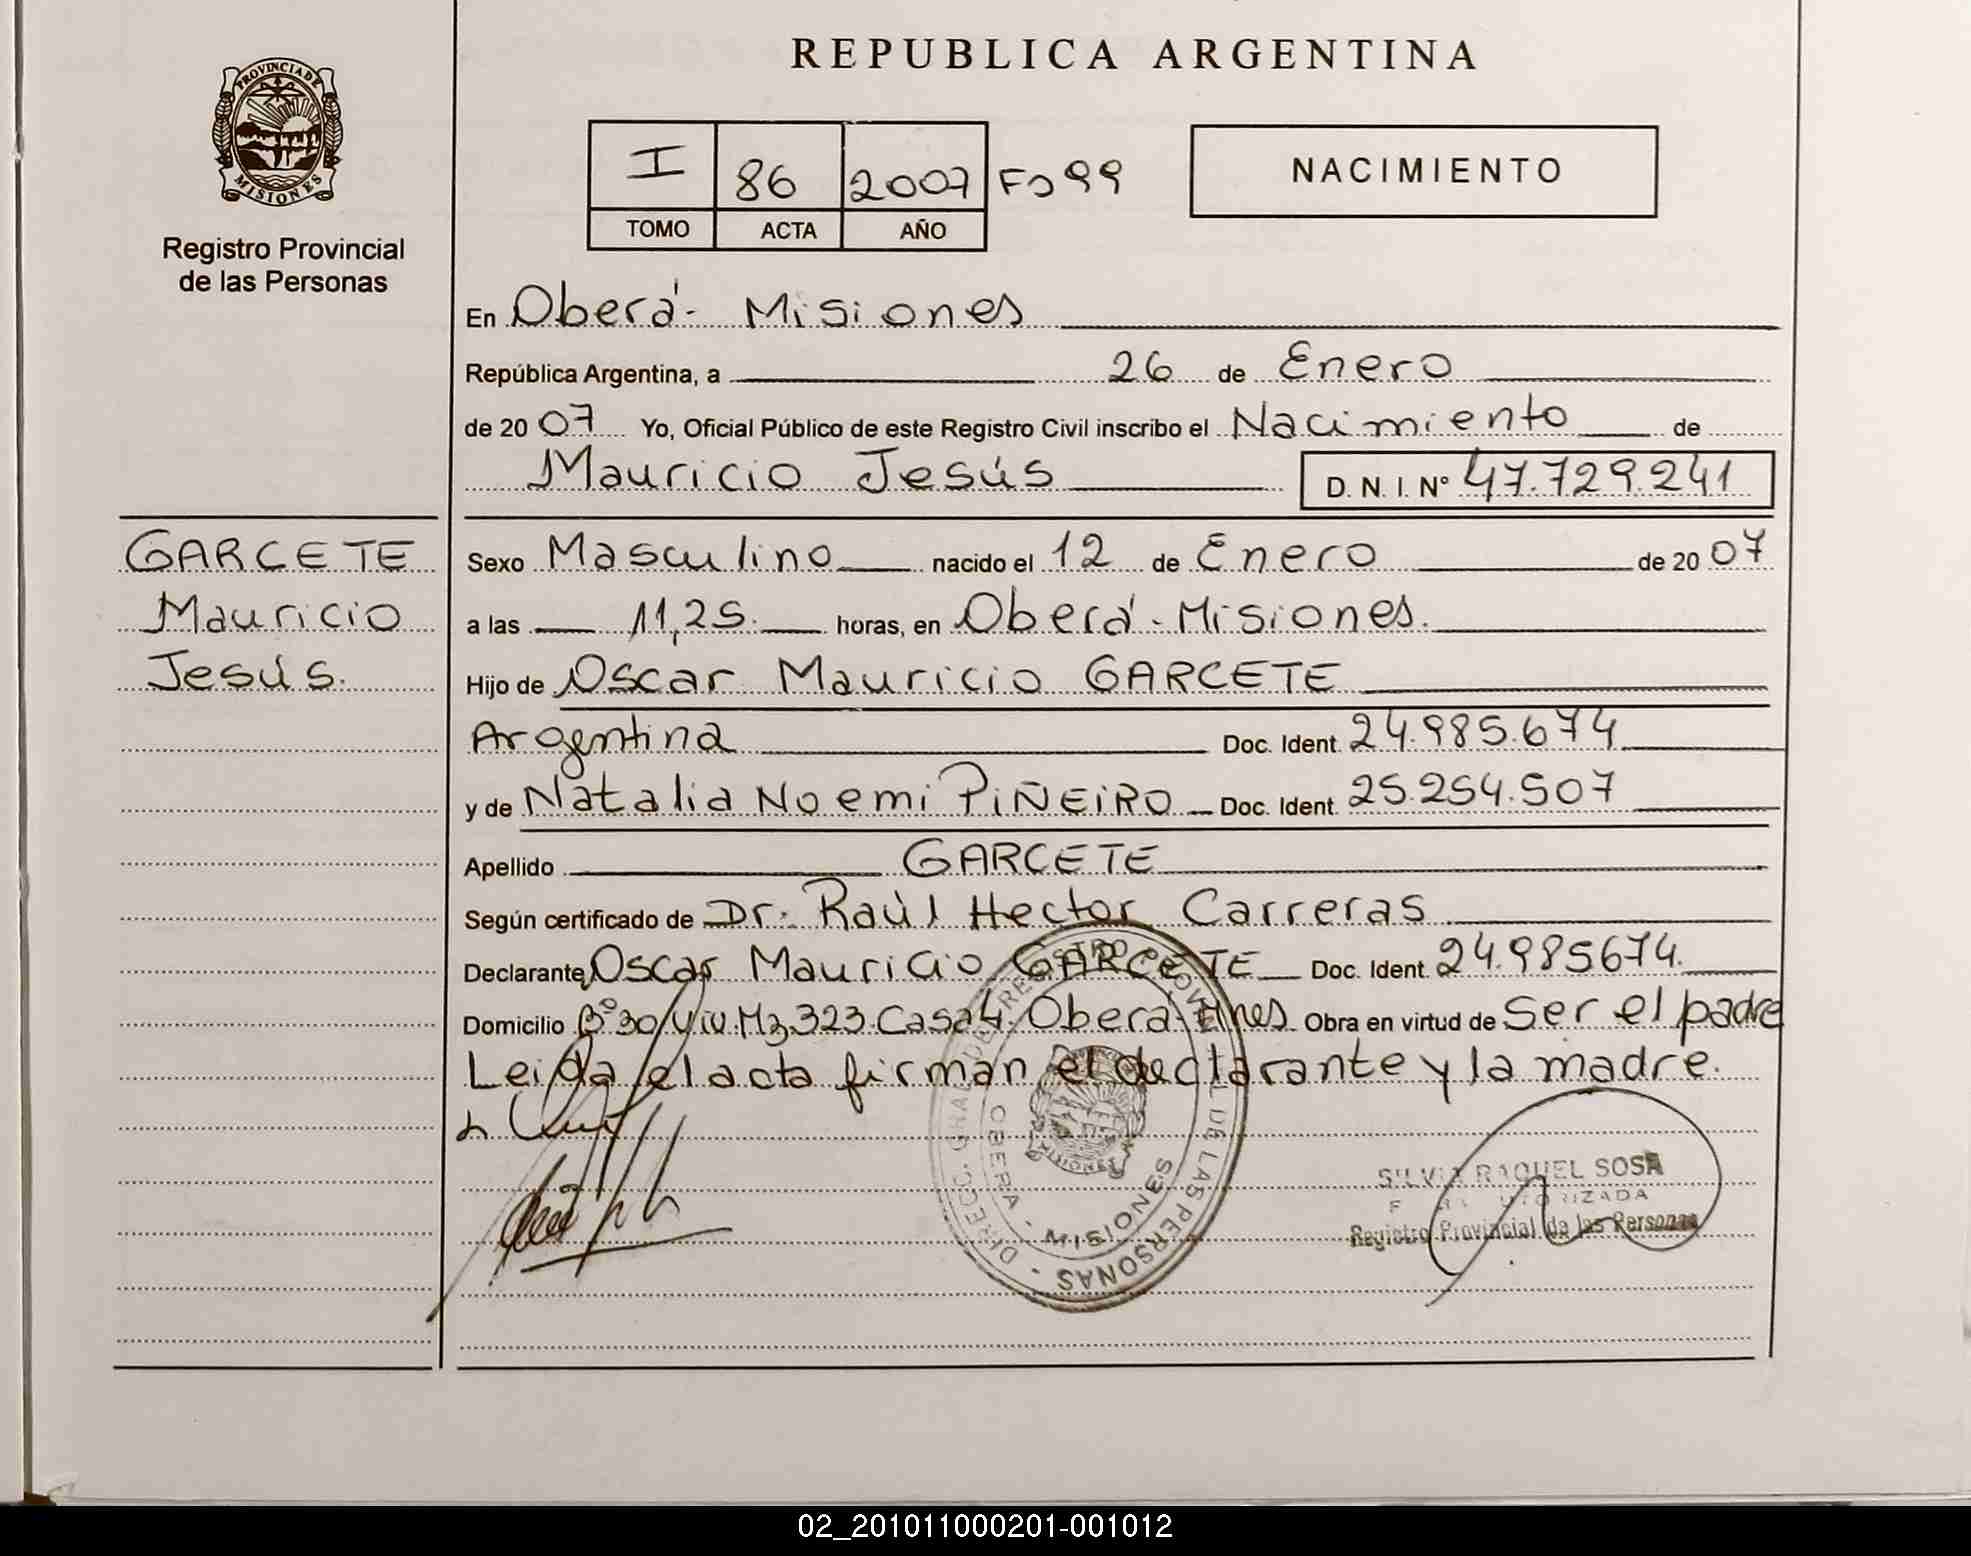 REPUBLICA ARGENTINA
PROVINCIA DE MISIONES
Registro Provincial
de las Personas
I 86 2007 Fo 99
TOMO ACTA AÑO
NACIMIENTO
En Oberá - Misiones
República Argentina, a 26 de Enero
de 20 07 Yo, Oficial Público de este Registro Civil inscribo el Nacimiento de
Mauricio Jesús D. N. I. Nº 47.729.241
GARCETE
Mauricio
Jesús.
Sexo Masculino nacido el 12 de Enero de 20 07
a las 11,25 horas, en Oberá - Misiones.
Hijo de Oscar Mauricio GARCETE
Argentina Doc. Ident. 24.985.674
y de Natalia Noemi PIÑEIRO Doc. Ident. 25.254.507
Apellido GARCETE
Según certificado de Dr. Raùl Hector Carreras
Declarante Oscar Mauricio GARCETE Doc. Ident. 24.985674.
Domicilio Bº 30 Viv. Mz 323 Casa 4 Oberá - Mnes Obra en virtud de Ser el padre
Leida el acta firman el declarante y la madre.
DIRECC. GRAL. DE REGISTRO PROVINCIAL DE LAS PERSONAS -
OBERA - MISIONES
MISIONES
SILVIA RAQUEL SOSA
AUTORIZADA
Registro Provincial de las Personas
02_201011000201-001012